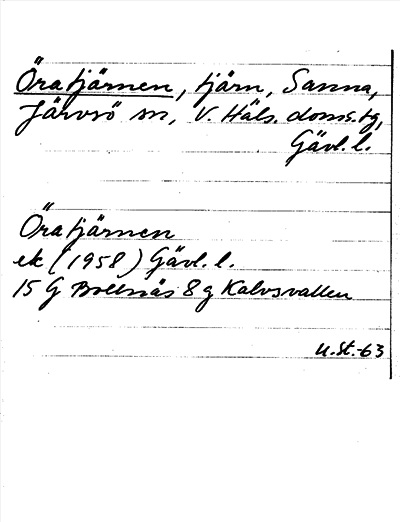 Öratjärnen, tjärn, Sanna,
Järvsö sn, V. Häls. doms.tg,
Gävl. l.
Öratjärnen
ek (1958) Gävl. l.
15 G Bollnäs 8 g Kalvsvallen
U.St.-63